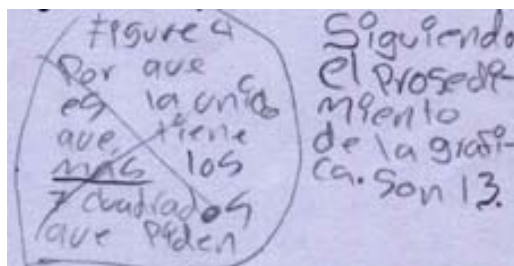 Figure 4
Por que
es la unica
que tiene
mas los
7 cuadrados
que piden
Siguiendo
el prosedi-
miento
de la grafi-
ca. Son 13.